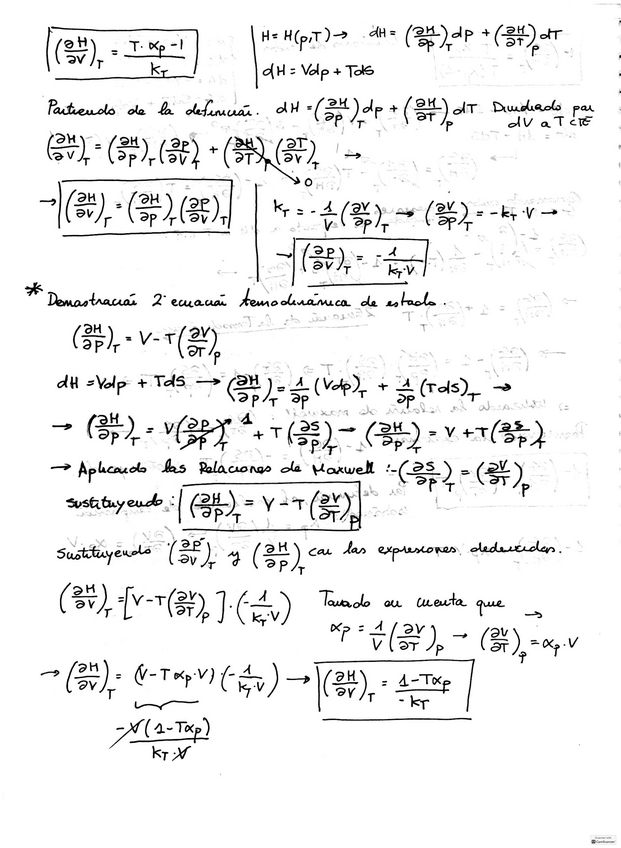 (∂H/∂V)_T = (T·αp-1)/k_T
H = H(p,T) → dH = (∂H/∂p)_T dp + (∂H/∂T)_p dT
dH = Vdp + Tds
Partiendo de la definición. dH = (∂H/∂p)_T dp + (∂H/∂T)_p dT Dividiendo por
dV a T CTE
(∂H/∂V)_T = (∂H/∂p)_T (∂p/∂V)_T + (∂H/∂T)_p (∂T/∂V)_T →
0
→ (∂H/∂V)_T = (∂H/∂p)_T (∂p/∂V)_T
k_T = -1/V (∂V/∂p)_T → (∂V/∂p)_T = -k_T·V →
→ (∂p/∂V)_T = -1/(k_T·V)
* Demostración 2ª ecuación termodinámica de estado.
(∂H/∂p)_T = V - T(∂V/∂T)_p
dH = Vdp + TdS → (∂H/∂p)_T = 1/∂p (Vdp)_T + 1/∂p (TdS)_T →
→ (∂H/∂p)_T = V(∂p/∂p)_T 1 + T(∂S/∂p)_T → (∂H/∂p)_T = V + T(∂S/∂p)_T
→ Aplicando las Relaciones de Maxwell: -(∂S/∂p)_T = (∂V/∂T)_p
Sustituyendo: (∂H/∂p)_T = V - T(∂V/∂T)_p
Sustituyendo (∂p/∂V)_T y (∂H/∂p)_T con las expresiones deducidas.
(∂H/∂V)_T = [V - T(∂V/∂T)_p]·(-1/(k_T·V)) Teniendo en cuenta que →
αp = 1/V (∂V/∂T)_p → (∂V/∂T)_p = αp·V
→ (∂H/∂V)_T = (V - Tαp·V)·(-1/(k_T·V)) → (∂H/∂V)_T = (1-Tαp)/(-k_T)
-V(1-Tαp)/(k_T·V)
CamScanner